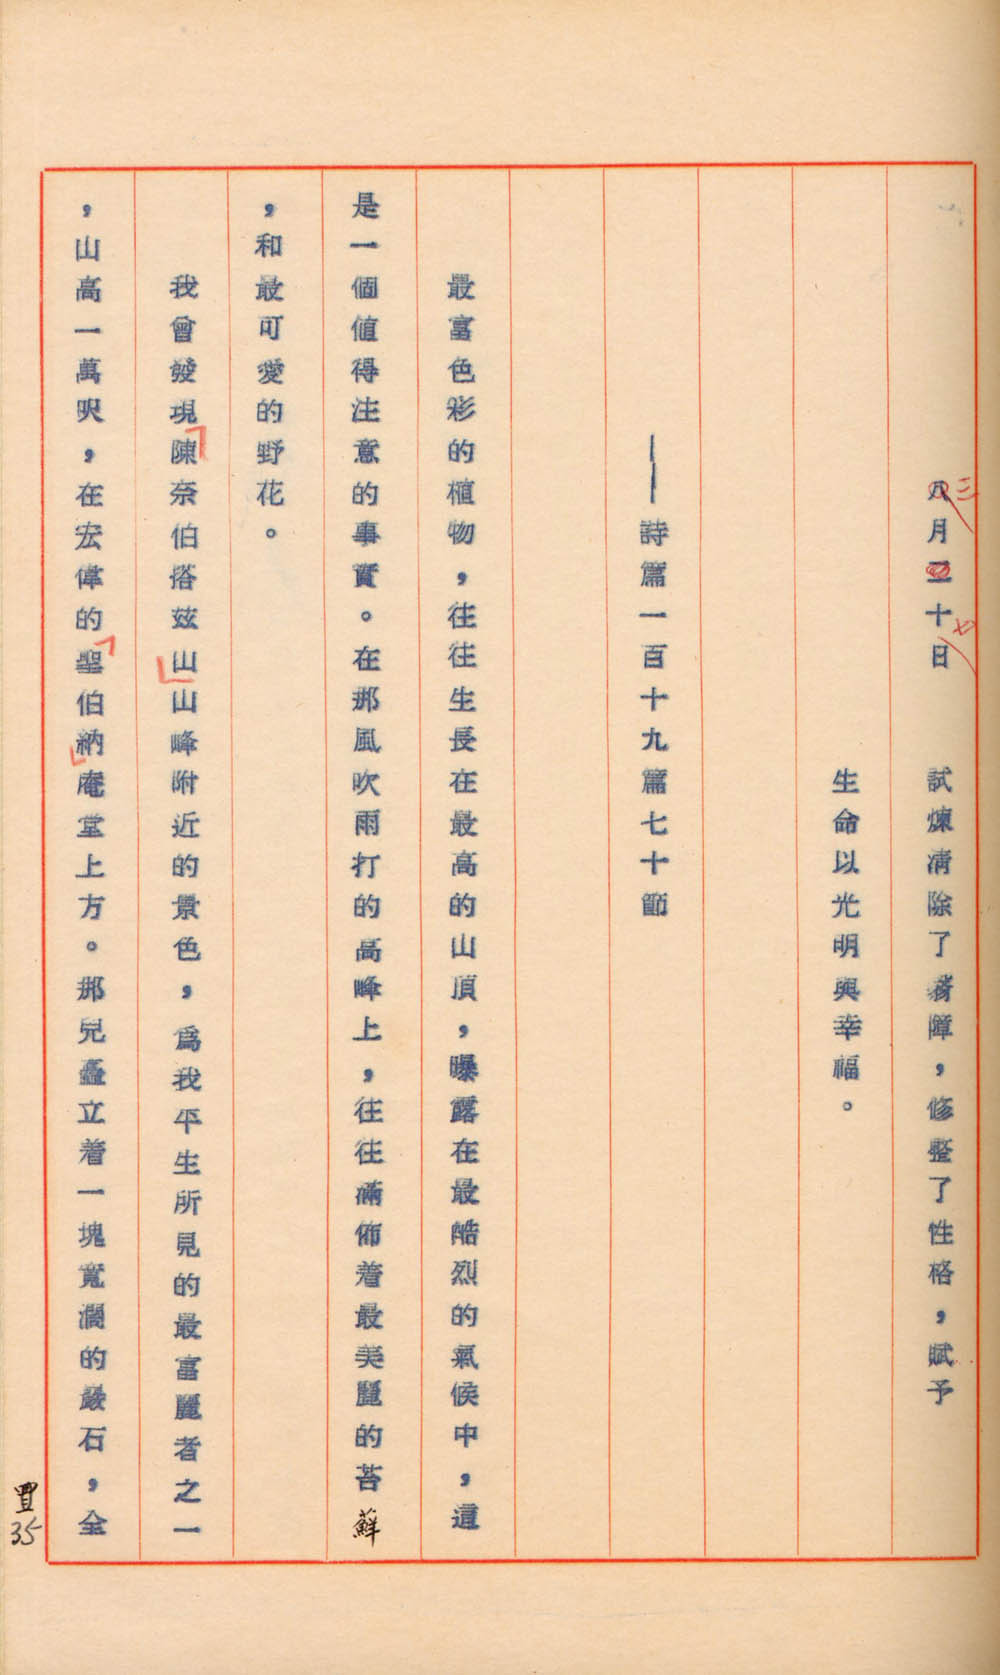 三月十七日　試煉清除了障，修整了性格，賦予
生命以光明與幸福。
——詩篇一百十九篇七十節
最富色彩的植物，往往生長在最高的山頂，曝露在最酷烈的氣候中，這
是一個值得注意的事實。在那風吹雨打的高峰上，往往滿佈着最美麗的苔蘚
，和最可愛的野花。
我曾發現「陳奈伯搭茲山」山峰附近的景色，爲我平生所見的最富麗者之一
，山高一萬呎，在宏偉的「聖伯納」庵堂上方。那兒矗立着一塊寬濶的巖石，全
35